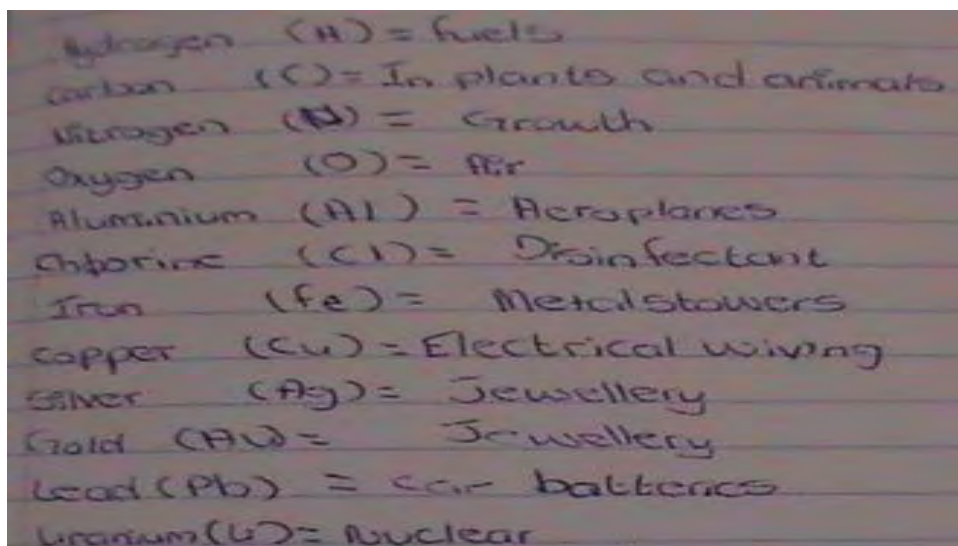 Hydrogen (H) = fuels
carbon (C) = In plants and animals
Nitrogen (N) = Growth
Oxygen (O) = Air
Aluminium (Al) = Aeroplanes
Chlorine (Cl) = Disinfectant
Iron (fe) = Metalstowers
copper (Cu) = Electrical wiving
Silver (Ag) = Jewellery
Gold (Au) = Jewellery
Lead (Pb) = car batteries
Uranium (U) = Nuclear